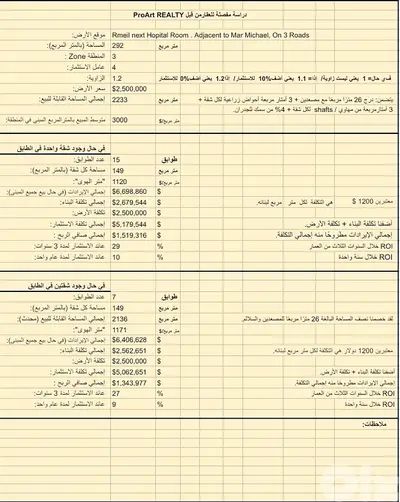 دراسة مفصلة للعقارمن قبل ProArt REALTY
موقع الأرض: Rmeil next Hopital Room . Adjacent to Mar Michael, On 3 Roads
المساحة (بالمتر المربع): 292 متر مربع
المنطقة Zone : 3
عامل الاستثمار: 4
الزاوية: 1.2 في حال= 1 يعني ليست زاوية/ إذا= 1.1 يعني أضف 10% للاستثمار/ إذا 1.2 يعني أضف %0 للاستثمار
سعر الأرض: $2,500,000
إجمالي المساحة القابلة للبيع: 2233 متر مربع يتضمن: درج 26 مترا مربعا مع مصعدين + 3 أمتار مربعة أحواض زراعية لكل شقة +
3 أمتارمربعة من مهاوي / shafts لكل شقة + 4% من سمك للجدران.
متوسط المبيع بالمترالمربع المبنى في المنطقة: 3000 متر مربع/$
في حال وجود شقة واحدة في الطابق
عدد الطوابق: 15 طوابق
مساحة كل شقة (بالمتر المربع): 149 متر مربع
"متر الهوى": 1120 متر مربع/$
إجمالي الإيرادات (في حال بيع جميع المبنى): $6,698,860 $
إجمالي تكلفة البناء: $2,679,544 $ معتبرين 1200 $ هي التكلفة لكل متر مربع لبنائه.
تكلفة الأرض: $2,500,000 $
إجمالي تكلفة الاستثمار: $5,179,544 $ أضفنا تكلفة البناء + تكلفة الأرض.
إجمالي صافي الربح : $1,519,316 $ إجمالي الإيرادات مطروحًا منه إجمالي التكلفة.
عائد الاستثمار لمدة 3 سنوات: 29 % ROI خلال السنوات الثلاث من العمار
عائد الاستثمار لمدة عام واحد: 10 % ROI خلال سنة واحدة
في حال وجود شقتين في الطابق
عدد الطوابق: 7 طوابق
مساحة كل شقة (بالمتر المربع): 149 متر مربع
إجمالي المساحة القابلة للبيع (محدث): 2136 متر مربع لقد خصمنا نصف المساحة البالغة 26 مترا مربعا للمصعدين والسلالم.
"متر الهوى": 1171 متر مربع/$
إجمالي الإيرادات (في حال بيع جميع المبنى): $6,406,628 $
إجمالي تكلفة البناء: $2,562,651 $ معتبرين 1200 دولار هي التكلفة لكل متر مربع لبنائه.
تكلفة الأرض: $2,500,000 $
إجمالي تكلفة الاستثمار: $5,062,651 $ أضفنا تكلفة البناء + تكلفة الأرض.
إجمالي صافي الربح : $1,343,977 $ إجمالي الإيرادات مطروحًا منه إجمالي التكلفة.
عائد الاستثمار لمدة 3 سنوات: 27 % ROI خلال السنوات الثلاث من العمار
عائد الاستثمار لمدة عام واحد: 9 % ROI خلال سنة واحدة
ملاحظات: